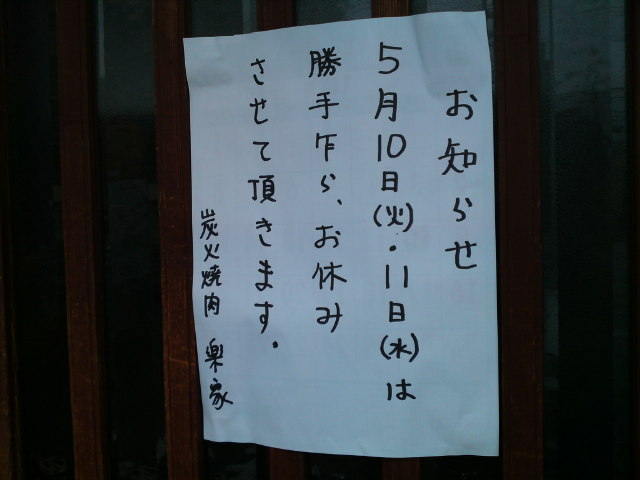 お知らせ
5月10日(火)・11日(水)は
勝手乍ら、お休み
させて頂きます.
炭火焼肉 楽家